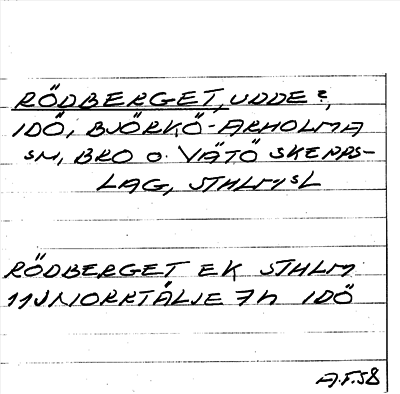 RÖDBERGET, UDDE?,
IDÖ, BJÖRKÖ-ARHOLMA
SN, BRO O. VÄTÖ SKEPPS-
LAG, STHLMS L
RÖDBERGET EK STHLM
11J NORRTÄLJE 7h IDÖ
A.F.58